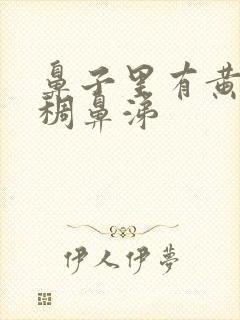 鼻子里有黄
稠鼻涕
伊人伊夢